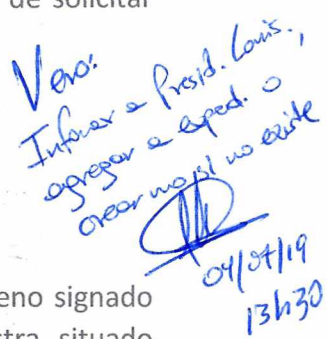 de solicitar
Vero:
Informar a Presid. Comis.,
agregar a exped. o
crear uno si no existe
04/07/19
13h30
eno signado
stra, situado